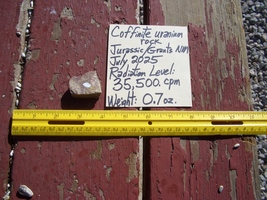 Coffinite uranium
rock
Jurassic/Grants NM
July 2025
Radiation Level:
35,500 cpm
Weight: 0.7oz.